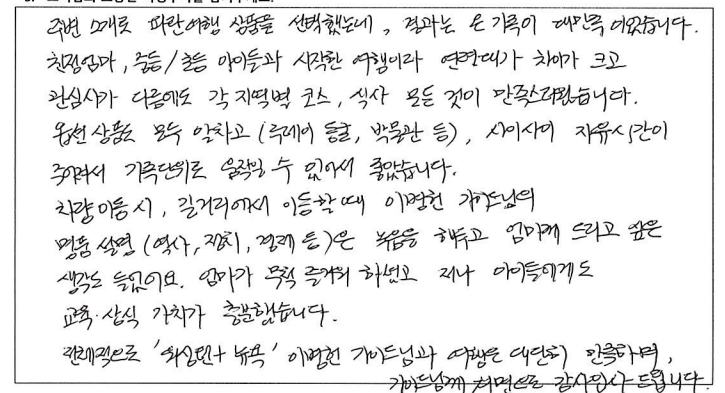 주변 소개로 파란여행 상품을 선택했는데, 결과는 온가족이 대만족이었습니다.
친정엄마, 중등/초등 아이들과 시작한 여행이라 연령대가 차이가 크고
관심사가 다름에도 각 지역별 코스, 식사 모든 것이 만족스러웠습니다.
옵션 상품도 모두 알차고 (루레이 동굴, 박물관 등), 사이사이 자유시간이
주어져서 가족단위로 움직일 수 있어서 좋았습니다.
차량이동시, 길거리에서 이동할 때 이명헌 가이드님의
명품 설명 (역사, 정치, 경제 등)은 녹음을 해두고 엄마께 드리고 싶은
생각도 들었어요. 엄마가 무척 즐거워 하셨고 저나 아이들에게도
교육·상식 가치가 충분했습니다.
전체적으로 '워싱턴+뉴욕' 이명헌 가이드님과 여행은 대단히 만족하며,
가이드님께 서면으로 감사인사 드립니다.